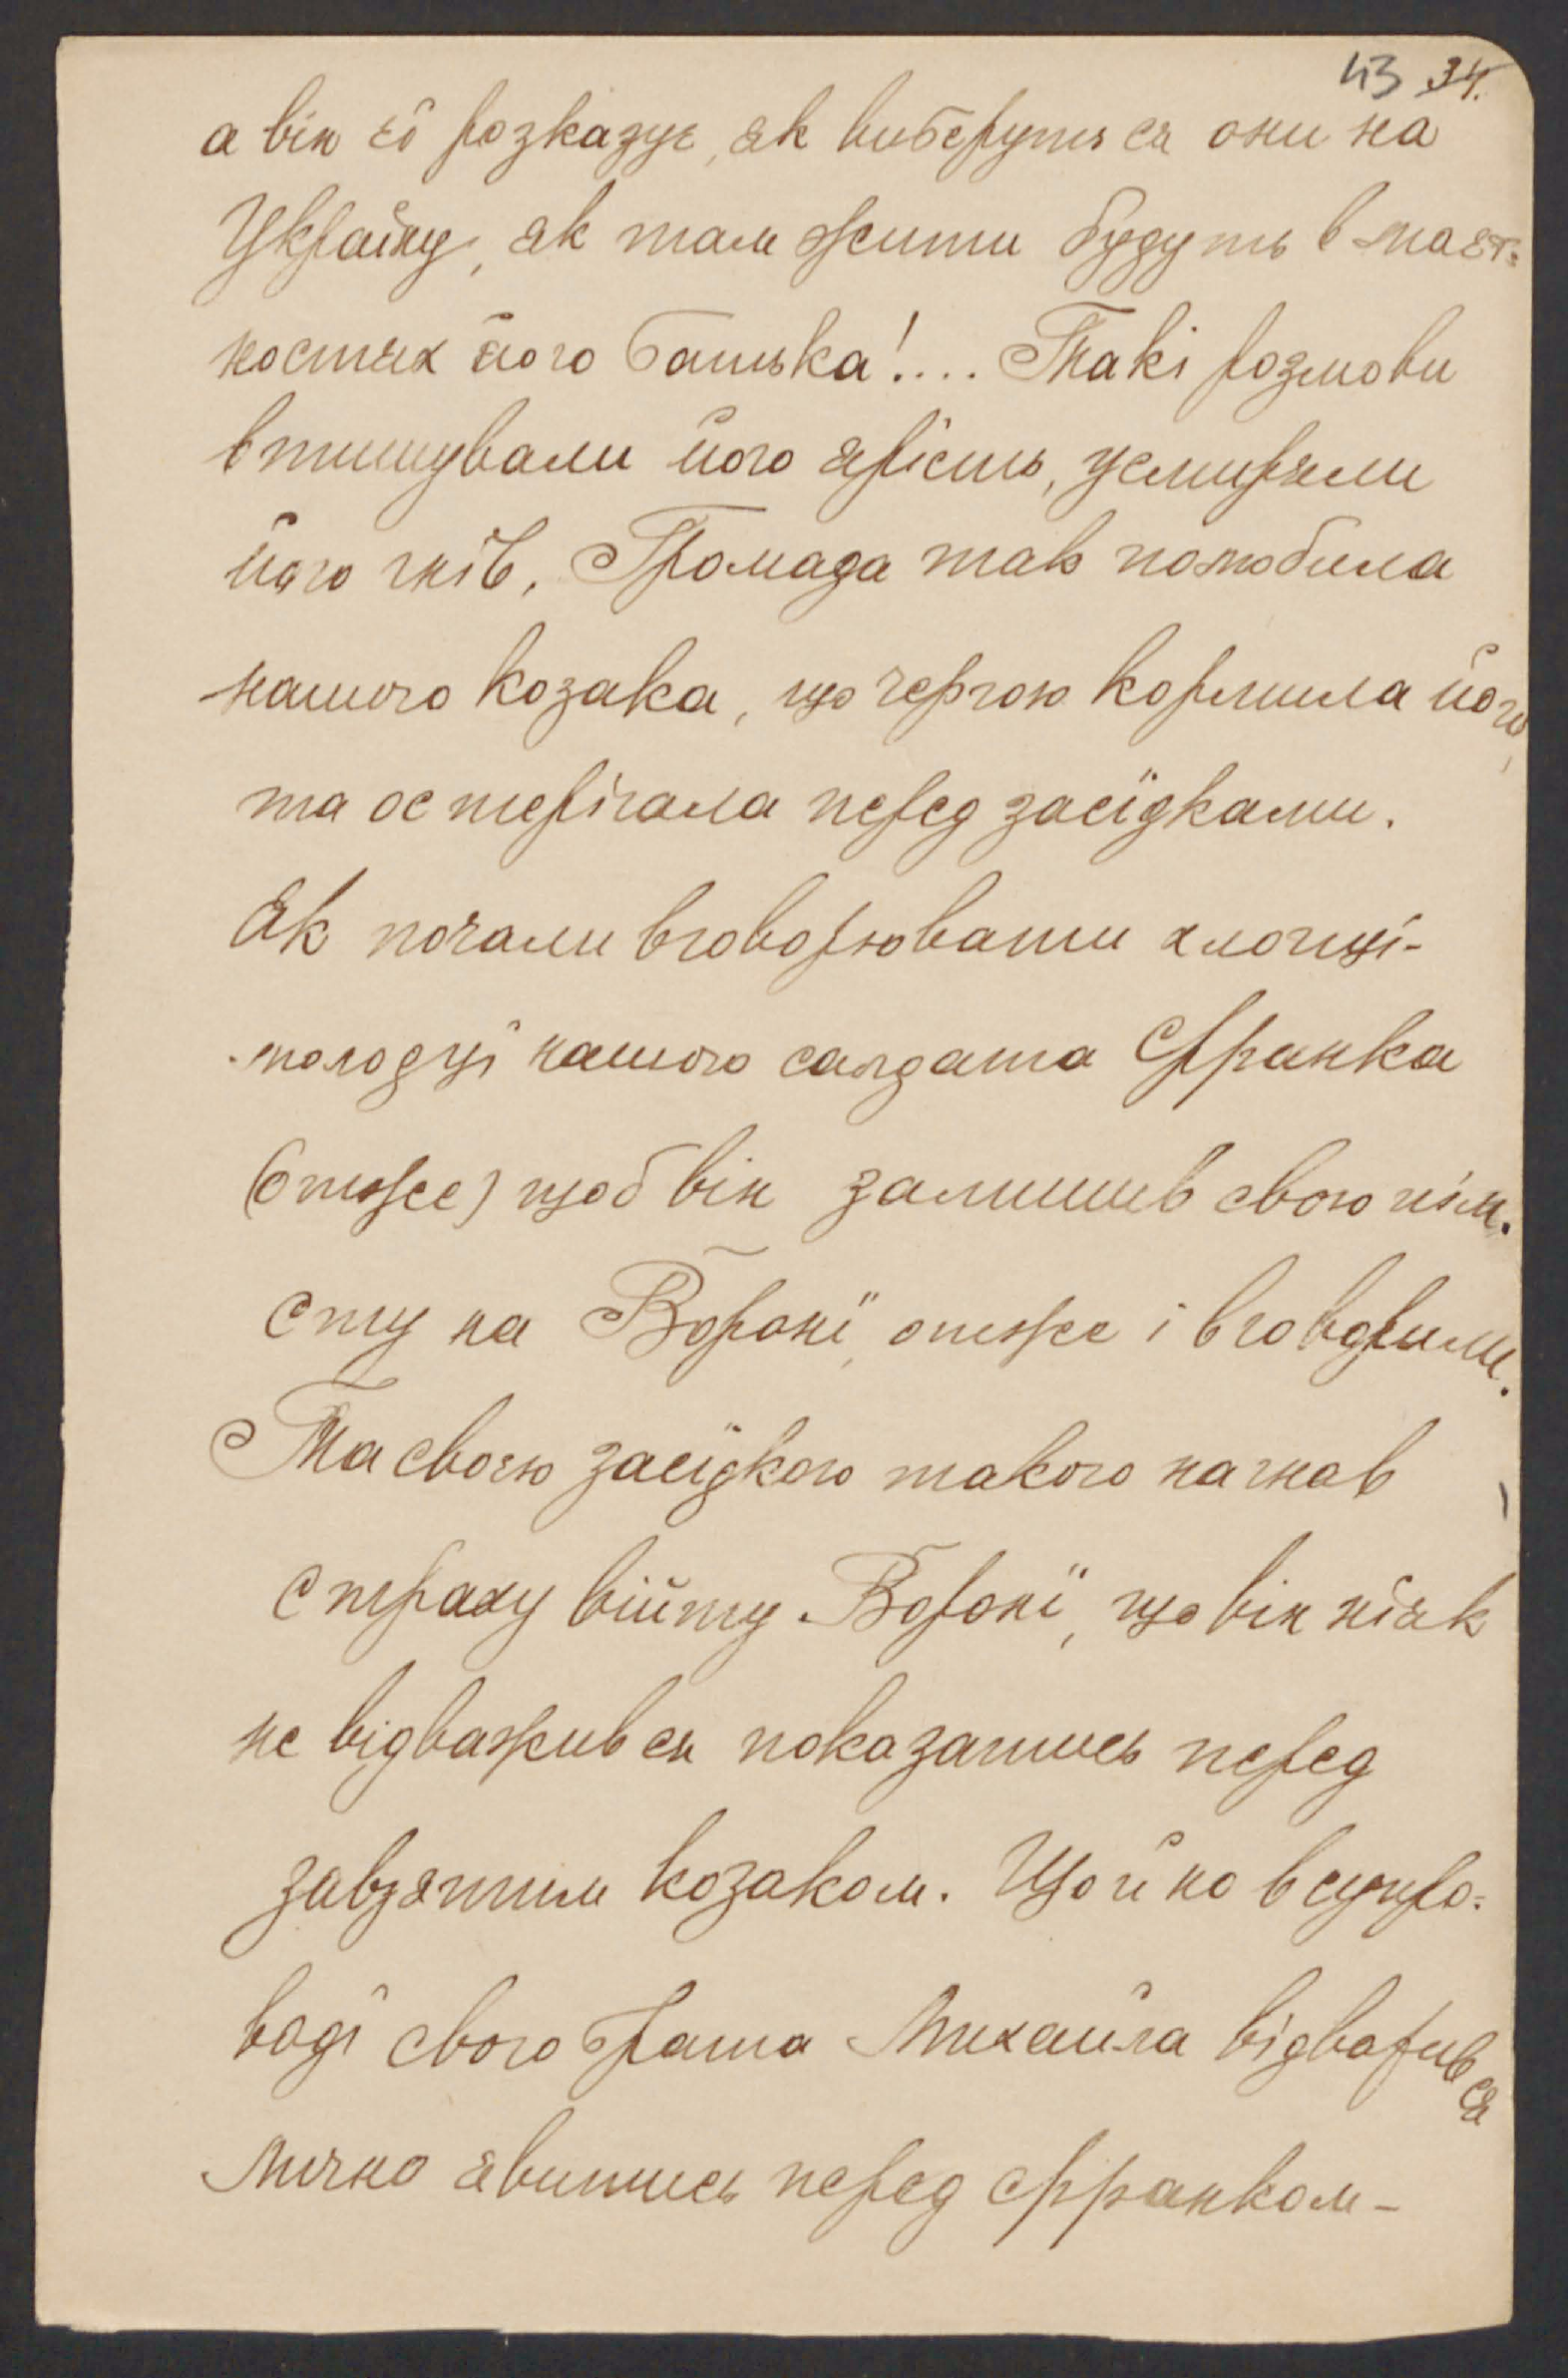 43 34.
а він єї розказує, як виберуть ся они на
Україну, як там жити будуть в маєт-
ностях його батька!.... Такі розмови
втишували його ярість, усмиряли
його гнів. Громада так полюбила
нашого козака, що чергою кормила його,
та остерігала перед засїдками.
Як почали вговорювати хлопцї-
молодцї нашого салдата Франка
(отже) щоб він залишив свою пім-
сту на Воронї, отже і вговорили.
Та своєю засїдкою такого нагнав
страху війту Воронї, що він нїяк
не відважив ся показатись перед
завзятим козаком. Щойно в супро-
водї свого брата Михайла відважив ся
лично явитись перед Франком-